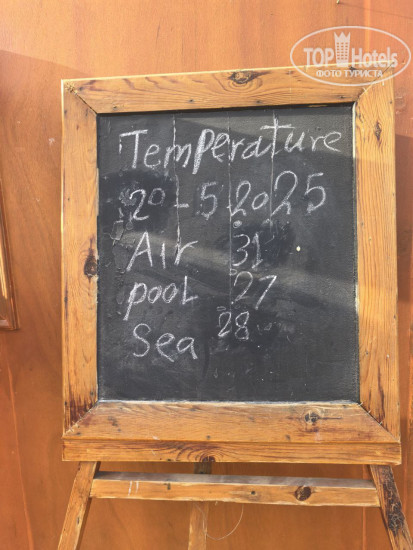 TOPHotels
ФОТО ТУРИСТА
Temperature
20-5 2025
Air 31
pool 27
Sea 28